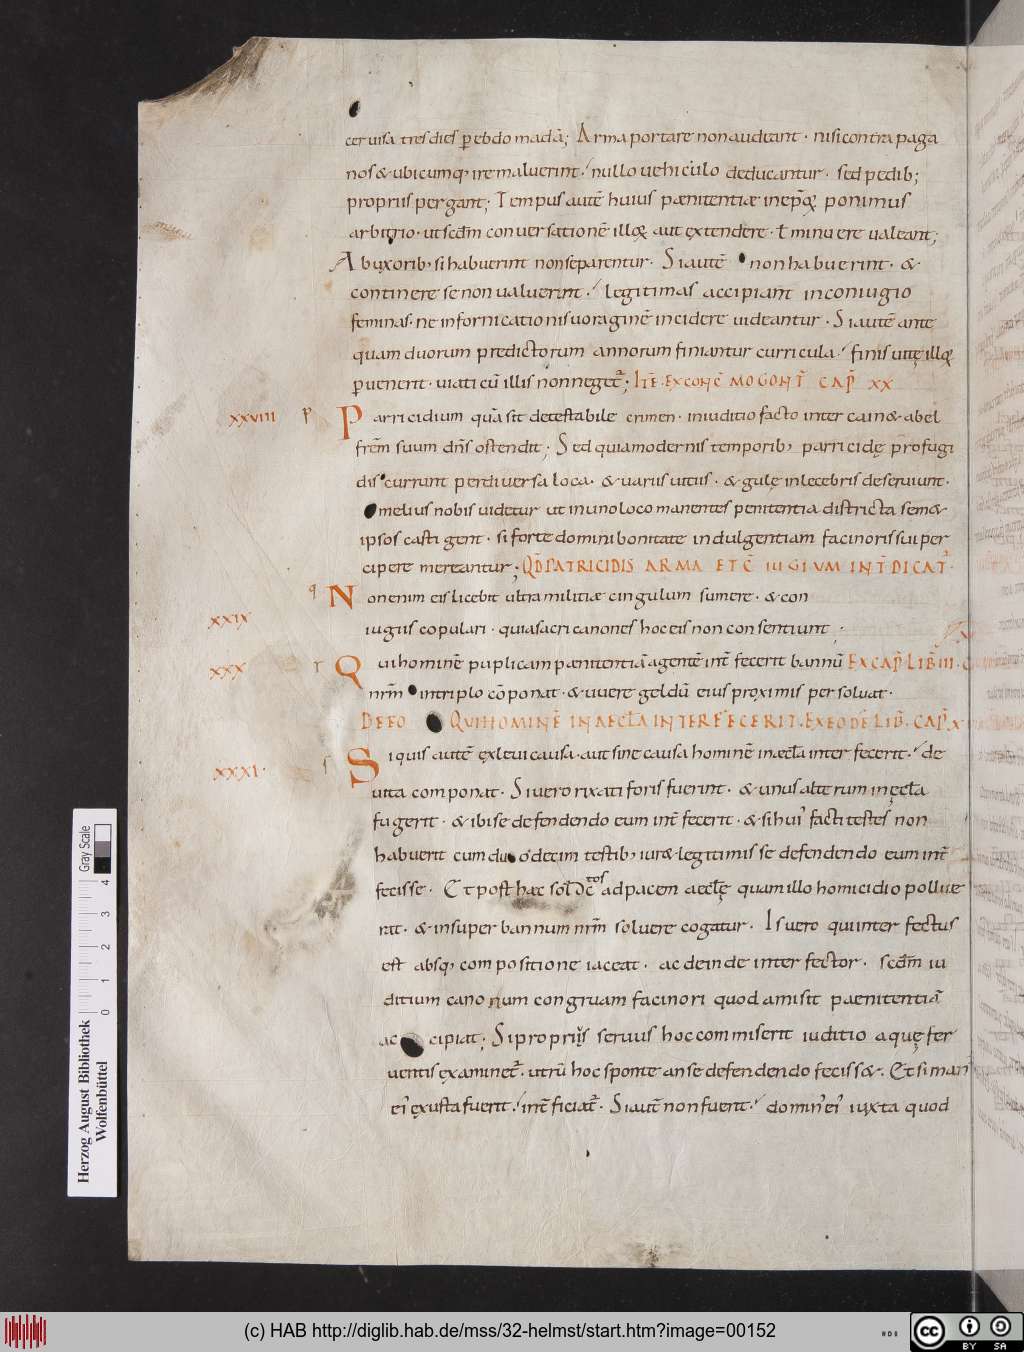 ceruisa tres dies p̱ ebdomadā; Arma portare non audeant · nisi contra paga
nos & ubicumq; ire maluerint · nullo uehiculo deducantur · sed pedib;
propriis pergant; Tempus autē huius pænitentiæ in ep̄oꝝ ponimus
arbitrio · ut scd̄m conuersationē illoꝝ aut extendere · ł minuere ualeant;
Ab uxorib; si habuerint non separentur · Si autē non habuerint · &
continere se non ualuerint · legitimas accipiant in coniugio
feminas · ne in fornicationis uoraginē incidere uideantur · Si autē ante
quam duorum predictorum annorum finiantur curricula · finis uitę illoꝝ
p̱uenerit · uiaticū illis non neget᷒; ITĒ · EX CONC̄ MOGONT̄ CAP̄ XX
XXVIII p Parricidium quā sit detestabile crimen · in iuditio facto inter cain & abel
fr̄em suum dn̄s ostendit; Sed quia modernis temporib; parricidę profugi
discurrunt per diuersa loca · & uariis uitiis · & gulę inlecebris deseruiunt ·
melius nobis uidetur ut in uno loco manentes penitentia districta sem&
ipsos castigent · si forte domini bonitate indulgentiam facinoris sui per
cipere mereantur; QD̄ PATRICIDIS ARMA ET C̄IUGIUM INT̄DICAT᷒ ·
XXIX q Non enim eis licebit ultra militiæ cingulum sumere · & con
iugiis copulari · quia sacri canones hoc eis non consentiunt;
XXX r Qui hominē puplicam pænitentiā agentē int̄fecerit bannū EX CAP̄ LIB̄ III ·
nr̄m in triplo cōponat · & uueregeldū eius proximis persoluat ·
DE EO QUI HOMINĒ IN AECL̄A INTERFECERIT · EX EODĒ LIB̄ · CAP̄ X
XXXI · s Si quis autē ex leui causa · aut sine causa hominē in æcl̄a interfecerit · de
uita componat · Si uero rixati foris fuerint · & unus alterum in ęcl̄a
fugerit · & ibi se defendendo eum int̄fecerit · & si hui᷒ facti testes non
habuerit cum duodecim testib; iur& legitimis se defendendo eum int̄
fecisse · Et post hæc sol̄ Dc̄tos ad pacem aecl̄ę quam illo homicidio pollue
rat · & insuper bannum nr̄m soluere cogatur · Is uero qui interfectus
est absq; compositione iaceat · ac deinde interfector · scd̄m iu
ditium canonum congruam facinori quod amisit paenitentiā
accipiat; Si propriis seruus hoc commiserit iuditio aquę fer
uentis examinet᷒ · utrū hoc sponte an se defendendo feciss& · Et si man᷒
ei᷒ exusta fuerit · int̄ficiat᷒ · Si aut̄ non fuerit · domin᷒ ei᷒ iuxta quod
Herzog August Bibliothek
Wolfenbüttel
0 1 2 3 4
Gray Scale
(c) HAB http://diglib.hab.de/mss/32-helmst/start.htm?image=00152
cc BY SA